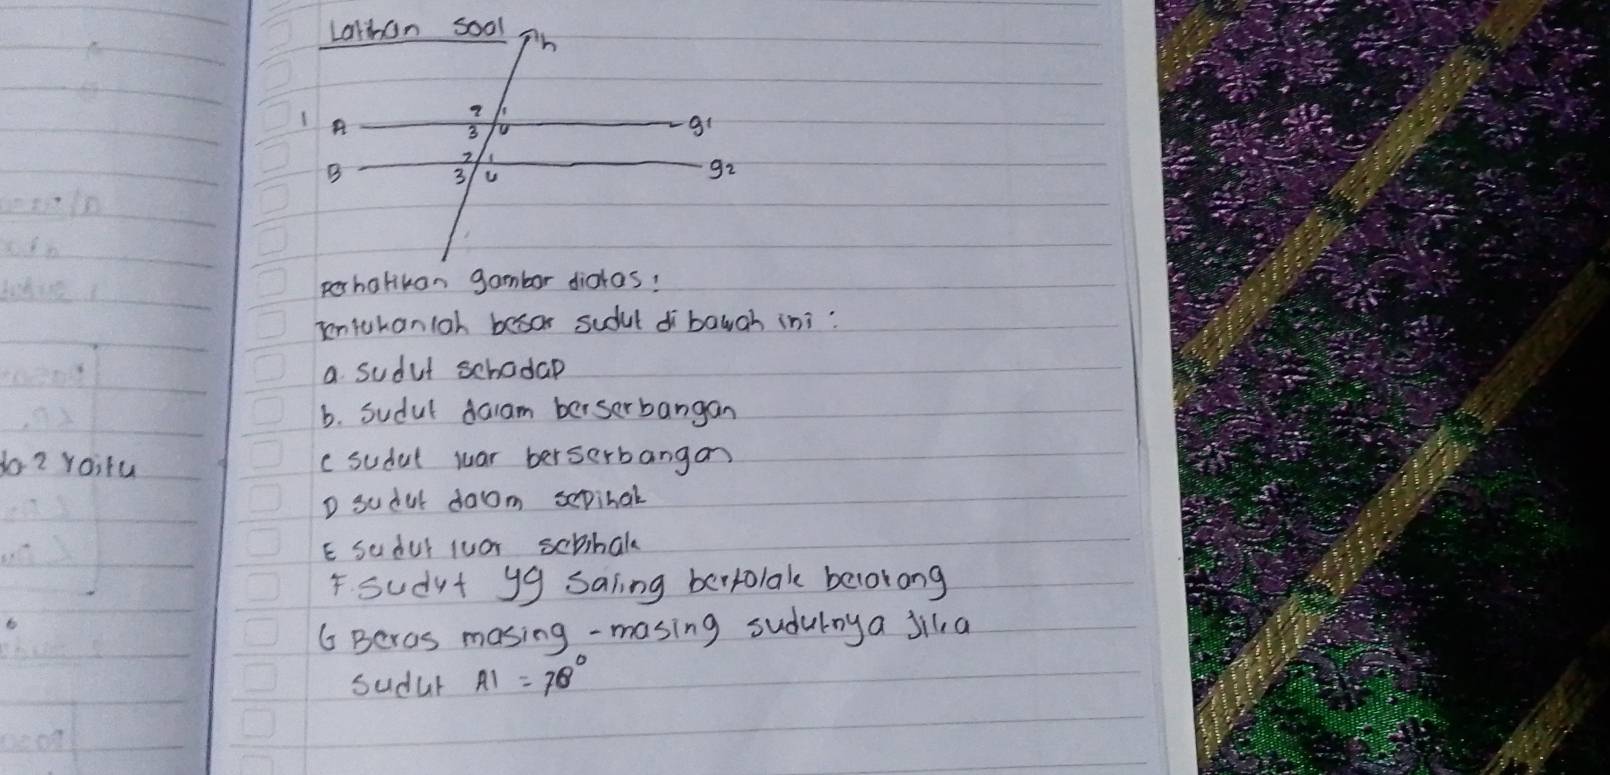 Latihan soal
h
1 A 2 1 3 4 g1
B 2 1 3 4 g2
perhatikan gambar diatas!
Tentukanlah besar sudut di bawah ini :
a. sudut sehadap
b. sudut dalam berserbangan
c sudut luar berserbangan
do2 yaitu
D sudut dalam sepihak
E sudut luar sepihak
F. sudut yg saling bertolak belakang
G Beras masing-masing sudutnya jika
sudut A1 = 78°